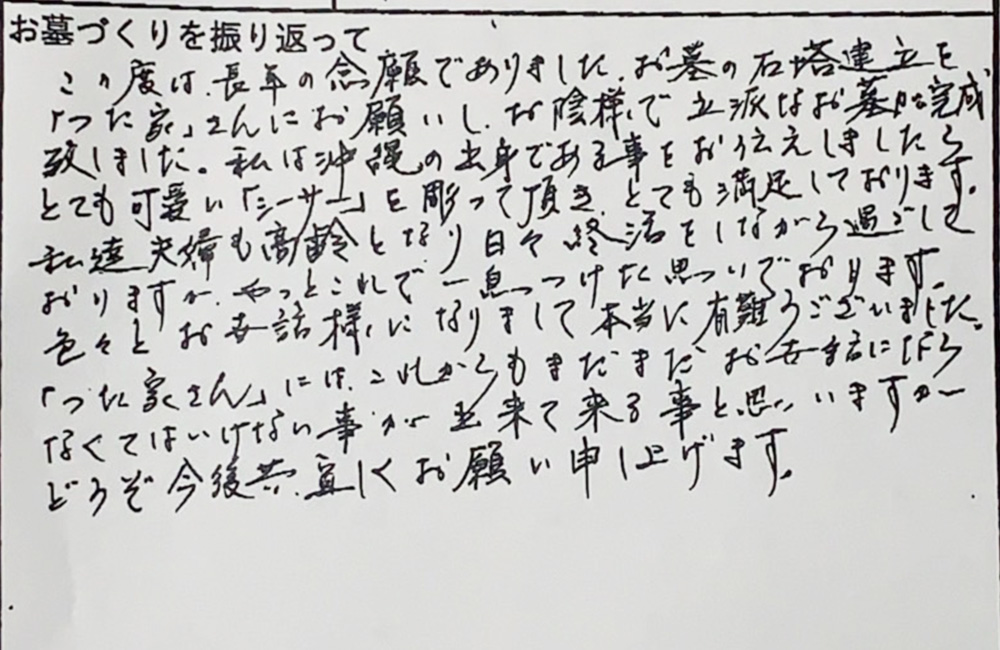 お墓づくりを振り返って
この度は、長年の念願でありました、お墓の石塔建立を
「つた家」さんにお願いし、お陰様で立派なお墓が完成
致しました。私は沖縄の出身である事をお伝えしましたら
とても可愛い「シーサー」を彫って頂き、とても満足しております。
私達夫婦も高齢となり日々終活をしながら過ごして
おりますが、やっとこれで一息つけた思いでおります。
色々とお世話様になりまして本当に有難うございました。
「つた家さん」には、これからもまだまだお世話にばら
なくてはいけない事が出来て来る事と思いますが
どうぞ今後共、宜しくお願い申し上げます。